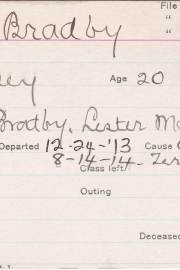 File
Bradby "
"
ey Age 20
Bradby, Lester Mo
Departed 12-24-'13 Cause
8-14-14- Ter
Class left
Outing
Deceased
N. Y.